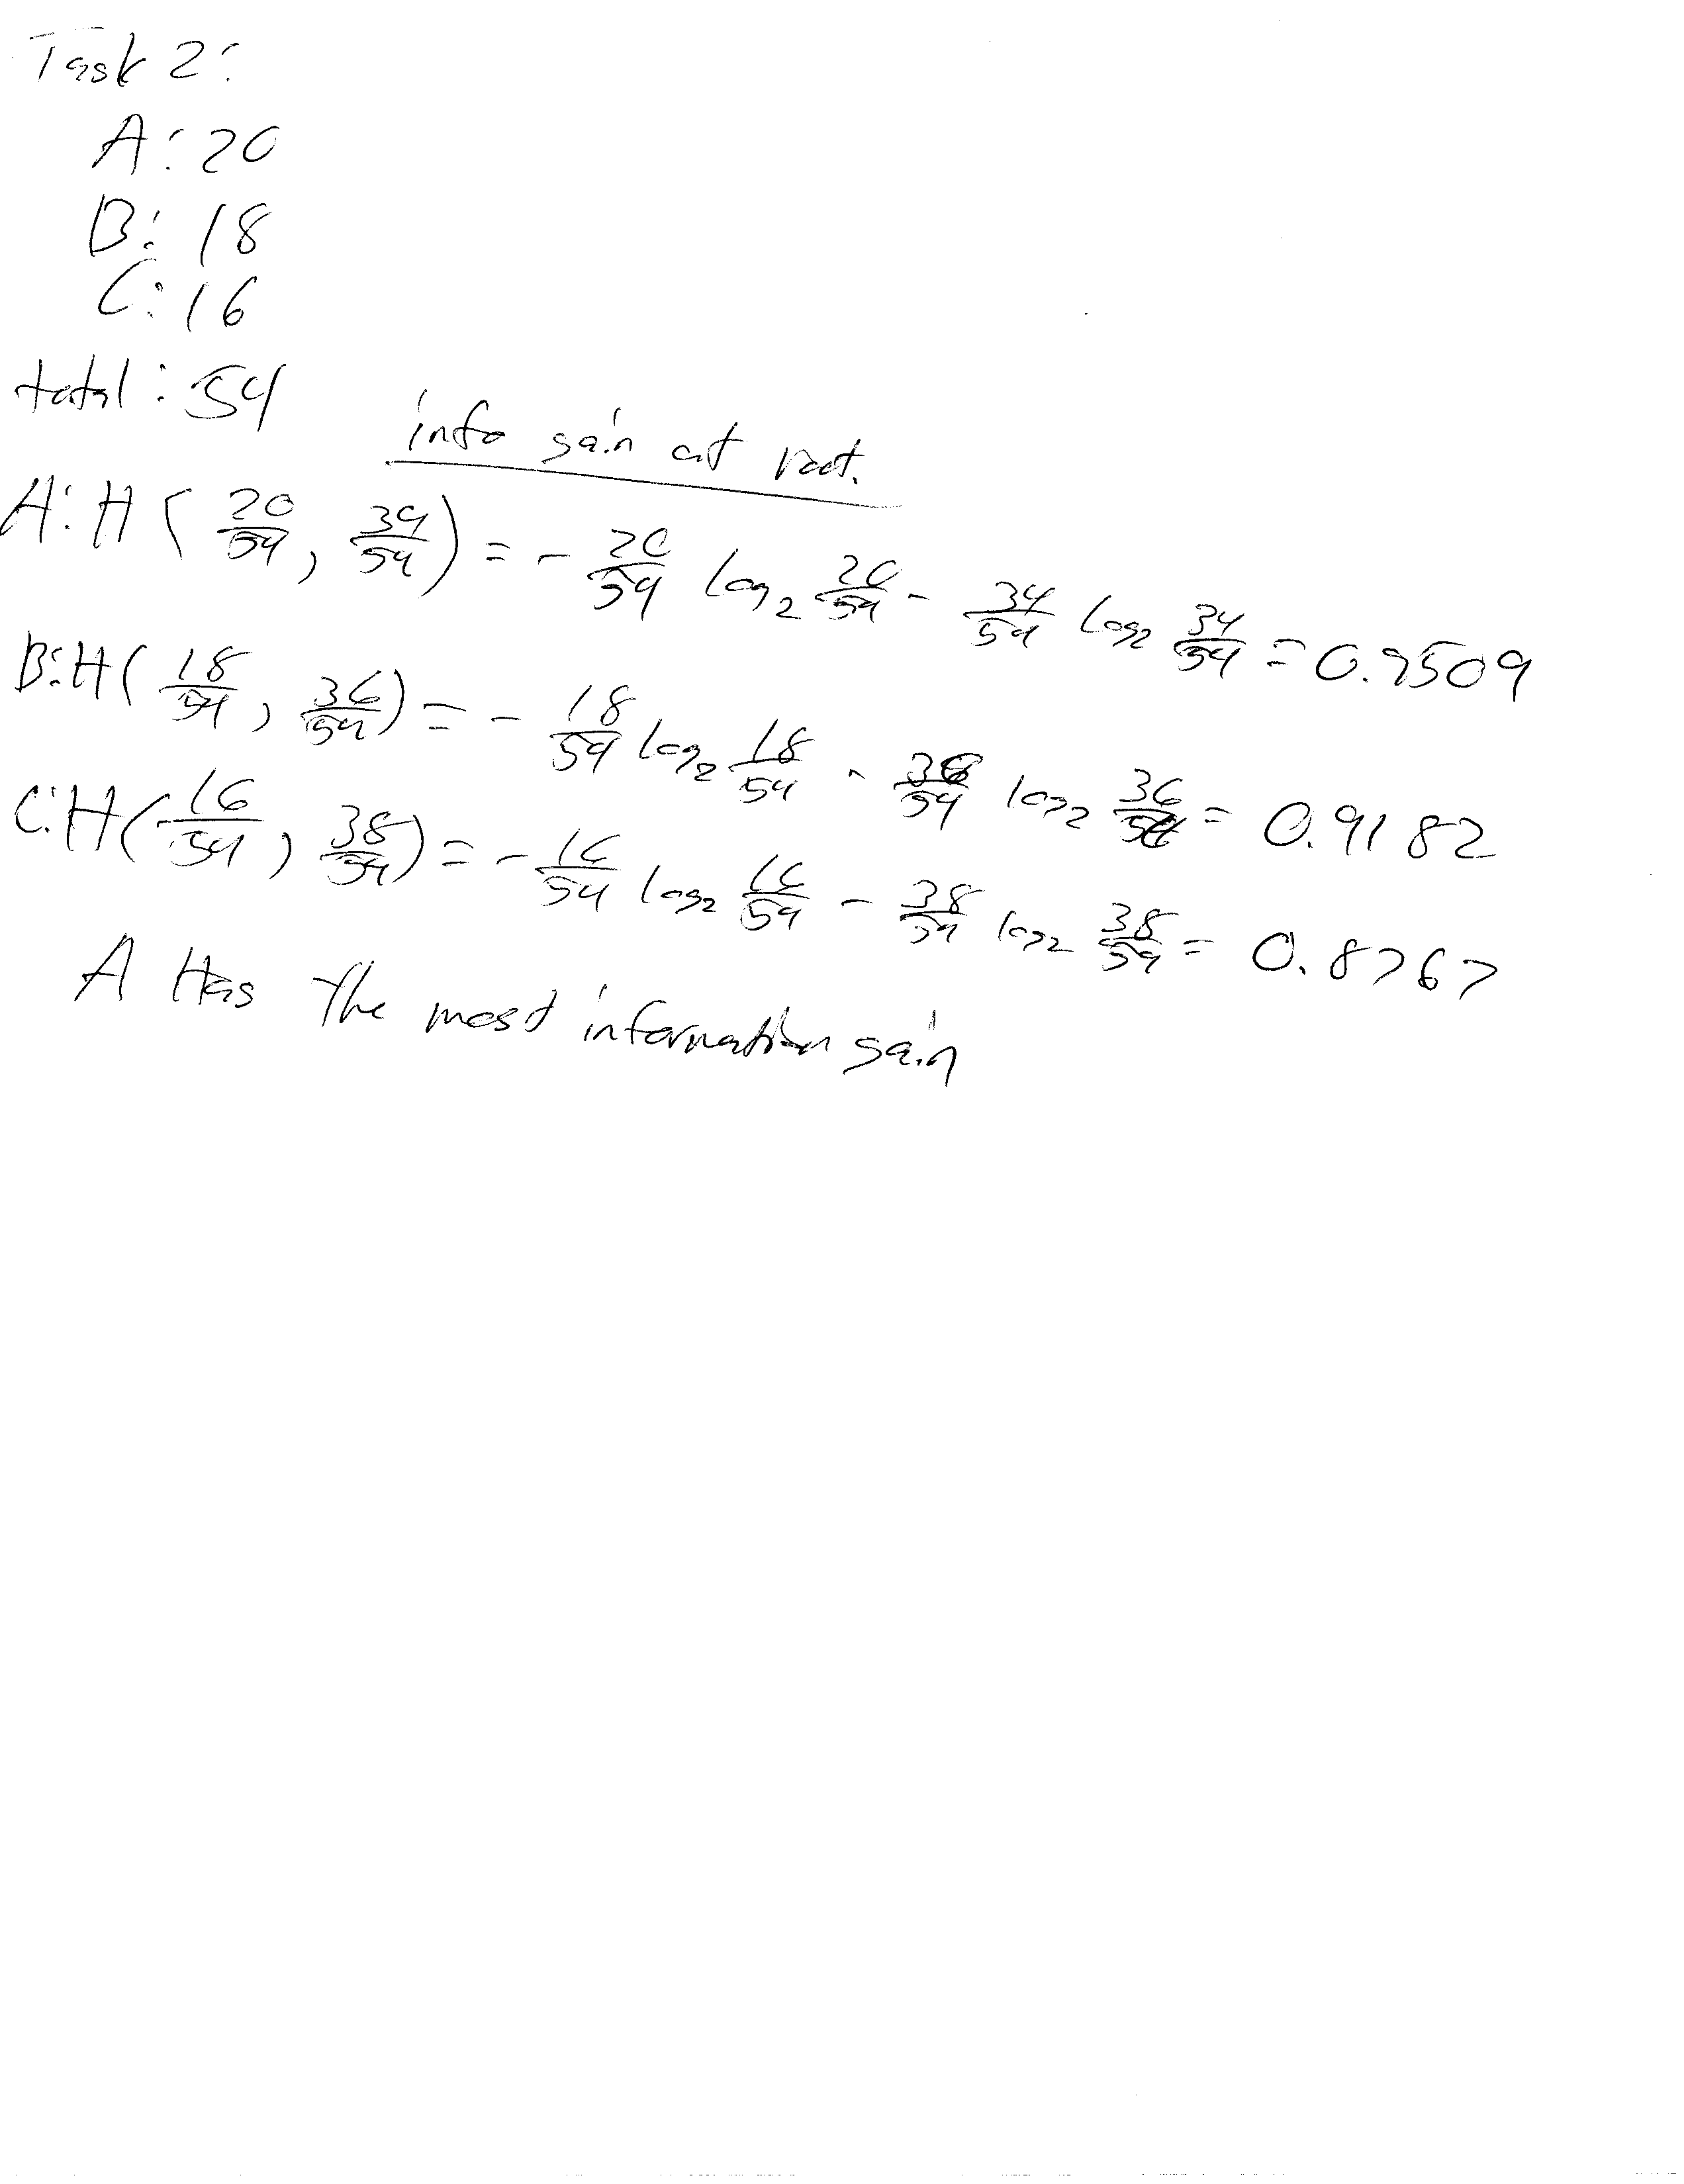 Task 2:
A: 20
B: 18
C: 16
total: 54
info gain at root.
A: H( 20/54 , 34/54 ) = - 20/54 log2 20/54 - 34/54 log2 34/54 = 0.9509
B: H( 18/54 , 36/54 ) = - 18/54 log2 18/54 - 36/54 log2 36/54 = 0.9182
C: H( 16/54 , 38/54 ) = - 16/54 log2 16/54 - 38/54 log2 38/54 = 0.8767
A Has The most information gain